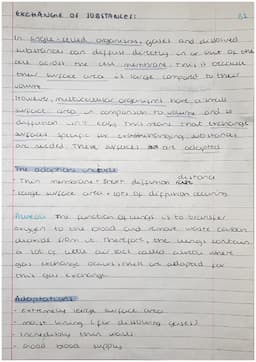 EXCHANGE OF SUBSTANCES: B2
In single-celled organisms, gases and dissolved
substances can diffuse directly in or out of the
cell across the cell membrane. This is because
their surface area is large compared to their
volume.
However, multicellular organisms have a small
surface area in comparison to volume and so
diffusion isn't easy. This means that exchange
surfaces specific for substances
are needed. These surfaces are adapted
The adaptions include
• Thin membrane = short diffusion distance
• large surface area = lots of diffusion occuring
Alveoli The function of lungs is to transfer
oxygen to the blood and remove waste carbon
dioxide from it. Therefore, the lungs contain
a lot of little air sacs called alveoli where
gas exchange occurs, these are adapted for
this gas exchange.
Adaptations
• extremely large surface area
• moist lining (for dissolving gases)
• incredibly thin walls
• good blood supply